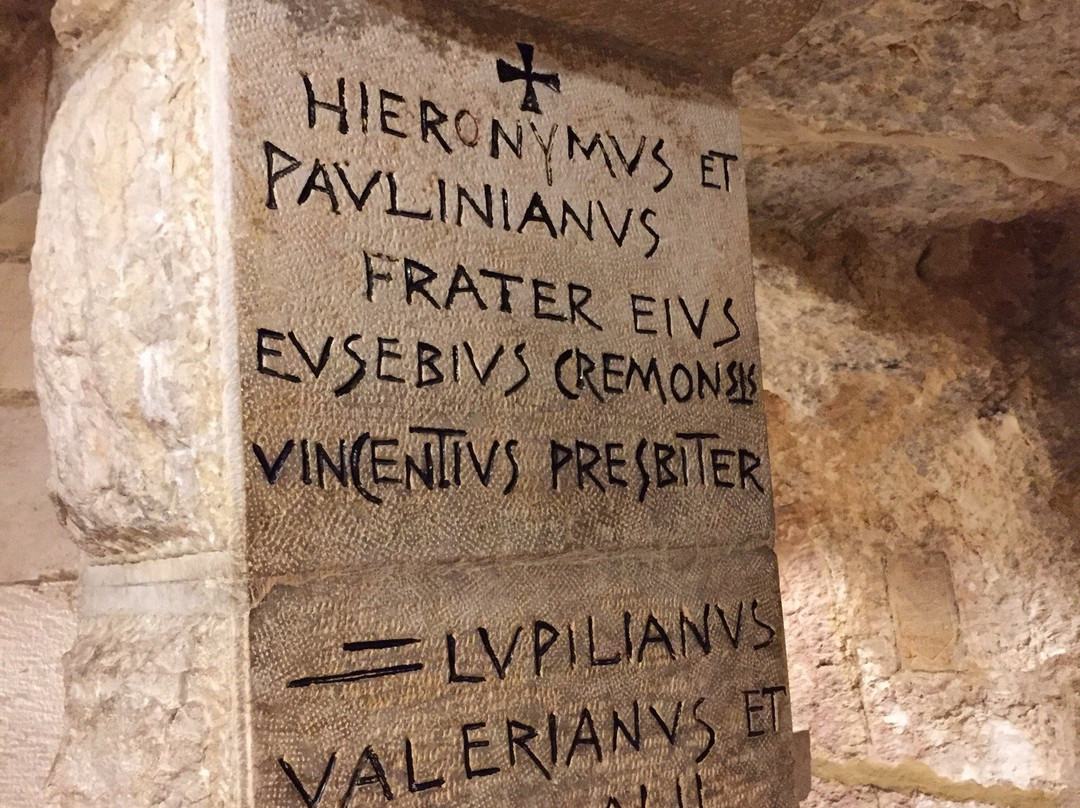 ✠
HIERONYMVS ET
PAVLINIANVS
FRATER EIVS
EVSEBIVS CREMONSIS
VINCENTIVS PRESBITER
= LVPILIANVS
VALERIANVS ET